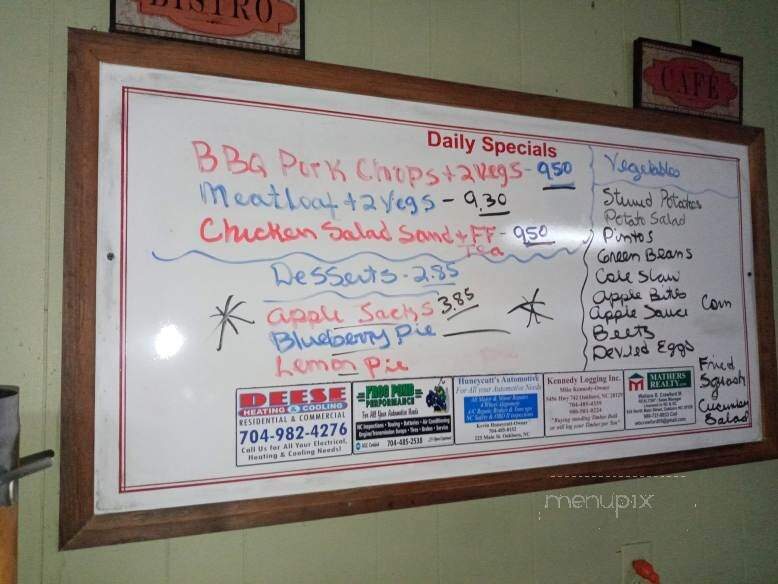 BISTRO
CAFÉ
Daily Specials
BBQ Pork Chops + 2 Vegs - 9.50
Meatloaf + 2 Vegs - 9.30
Chicken Salad Sand + FF - 9.50
Tea
Desserts - 2.85
Apple Sacks 3.85
Blueberry Pie
Lemon Pie
Vegetables
Stewed Potatoes
Potato Salad
Pintos
Green Beans
Cole Slaw
Apple Bites
Apple Sauce
Corn
Beets
Devled Eggs
Fried
Squash
Cucumber
Salad
DEESE
HEATING & COOLING
RESIDENTIAL & COMMERCIAL
704-982-4276
Call Us for All Your Electrical,
Heating & Cooling Needs!
FROG POND
PERFORMANCE
For All Your Automotive Needs
704-485-2538
Huneycutt's Automotive
For All your Automotive Needs
Kevin Huneycutt-Owner
225 Main St. Oakboro, NC
Kennedy Logging Inc.
Mike Kennedy-Owner
MATHERS
REALTY
menupix